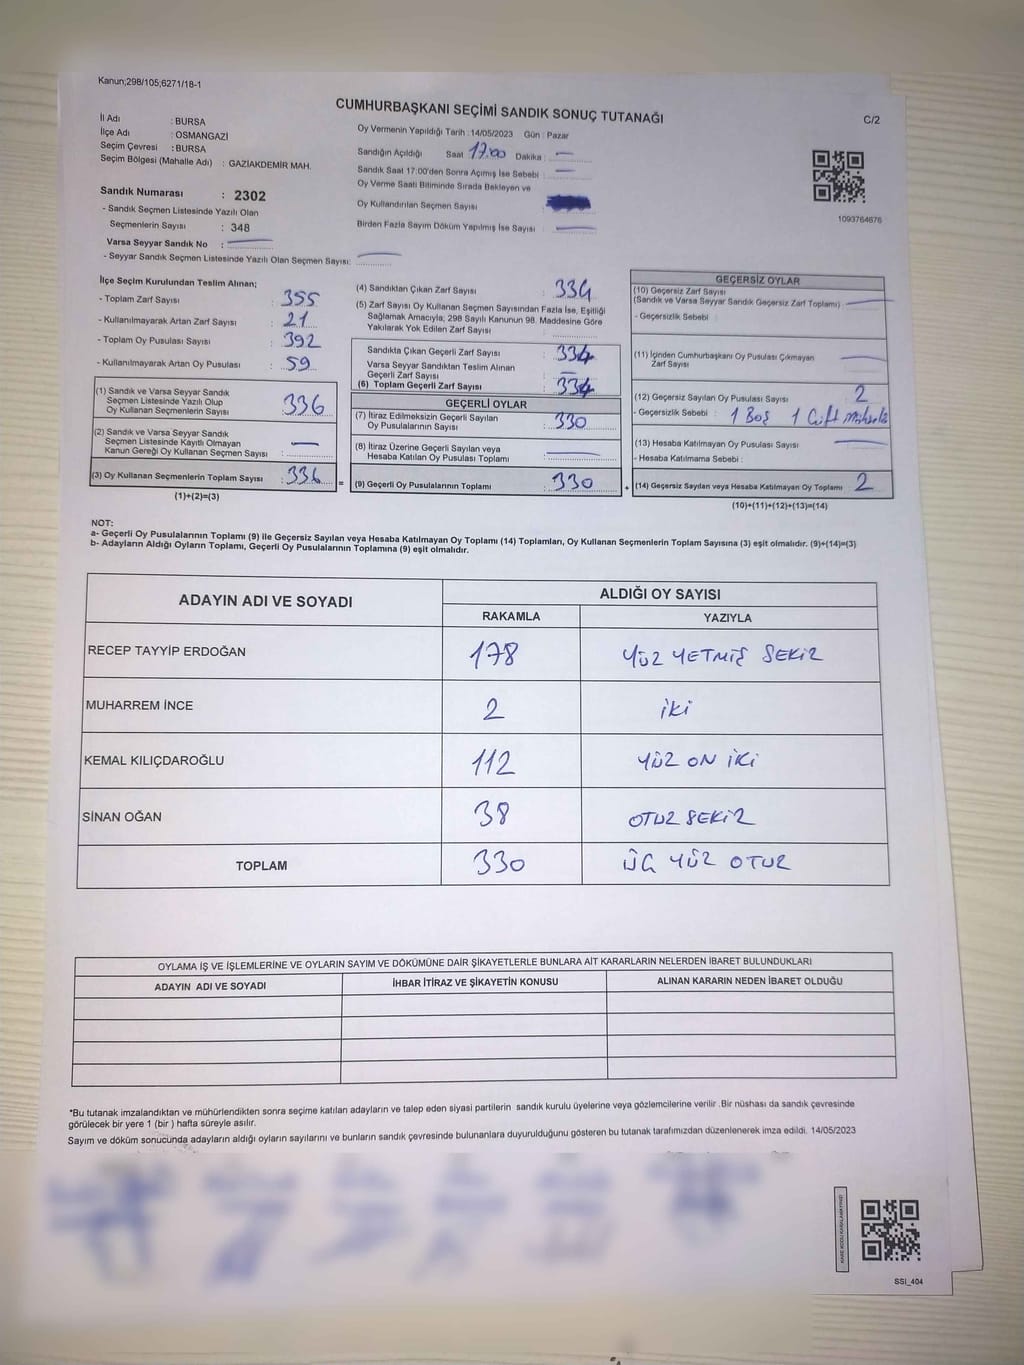 Kanun;298/105;6271/18-1
CUMHURBAŞKANI SEÇİMİ SANDIK SONUÇ TUTANAĞI
C/2
İl Adı : BURSA
İlçe Adı : OSMANGAZİ
Seçim Çevresi : BURSA
Seçim Bölgesi (Mahalle Adı) : GAZİAKDEMİR MAH.
Sandık Numarası : 2302
- Sandık Seçmen Listesinde Yazılı Olan
Seçmenlerin Sayısı : 348
Varsa Seyyar Sandık No :
- Seyyar Sandık Seçmen Listesinde Yazılı Olan Seçmen Sayısı:
Oy Vermenin Yapıldığı Tarih : 14/05/2023 Gün : Pazar
Sandığın Açıldığı Saat 17:00 Dakika :
Sandık Saat 17:00'den Sonra Açımış İse Sebebi :
Oy Verme Saati Bitiminde Sırada Bekleyen ve
Oy Kullandırılan Seçmen Sayısı
Birden Fazla Sayım Döküm Yapılmış İse Sayısı :
1093764676
İlçe Seçim Kurulundan Teslim Alınan;
- Toplam Zarf Sayısı : 355
- Kullanılmayarak Artan Zarf Sayısı : 21
- Toplam Oy Pusulası Sayısı : 392
- Kullanılmayarak Artan Oy Pusulası : 59
(1) Sandık ve Varsa Seyyar Sandık
Seçmen Listesinde Yazılı Olup
Oy Kullanan Seçmenlerin Sayısı : 336
(2) Sandık ve Varsa Seyyar Sandık
Seçmen Listesinde Kayıtlı Olmayan
Kanun Gereği Oy Kullanan Seçmen Sayısı :
(3) Oy Kullanan Seçmenlerin Toplam Sayısı : 336
(1)+(2)=(3)
=
(4) Sandıktan Çıkan Zarf Sayısı : 334
(5) Zarf Sayısı Oy Kullanan Seçmen Sayısından Fazla İse, Eşitliği
Sağlamak Amacıyla; 298 Sayılı Kanunun 98. Maddesine Göre
Yakılarak Yok Edilen Zarf Sayısı
Sandıkta Çıkan Geçerli Zarf Sayısı : 334
Varsa Seyyar Sandıktan Teslim Alınan
Geçerli Zarf Sayısı :
(6) Toplam Geçerli Zarf Sayısı : 334
GEÇERLİ OYLAR
(7) İtiraz Edilmeksizin Geçerli Sayılan
Oy Pusulalarının Sayısı : 330
(8) İtiraz Üzerine Geçerli Sayılan veya
Hesaba Katılan Oy Pusulası Toplamı :
(9) Geçerli Oy Pusulalarının Toplamı : 330
+
GEÇERSİZ OYLAR
(10) Geçersiz Zarf Sayısı
(Sandık ve Varsa Seyyar Sandık Geçersiz Zarf Toplamı) :
- Geçersizlik Sebebi :
(11) İçinden Cumhurbaşkanı Oy Pusulası Çıkmayan
Zarf Sayısı
(12) Geçersiz Sayılan Oy Pusulası Sayısı : 2
- Geçersizlik Sebebi : 1 Boş 1 Çift
(13) Hesaba Katılmayan Oy Pusulası Sayısı :
- Hesaba Katılmama Sebebi :
(14) Geçersiz Sayılan veya Hesaba Katılmayan Oy Toplamı : 2
(10)+(11)+(12)+(13)=(14)
NOT:
a- Geçerli Oy Pusulalarının Toplamı (9) ile Geçersiz Sayılan veya Hesaba Katılmayan Oy Toplamı (14) Toplamları, Oy Kullanan Seçmenlerin Toplam Sayısına (3) eşit olmalıdır. (9)+(14)=(3)
b- Adayların Aldığı Oyların Toplamı, Geçerli Oy Pusulalarının Toplamına (9) eşit olmalıdır.
ADAYIN ADI VE SOYADI ALDIĞI OY SAYISI
RAKAMLA YAZIYLA
RECEP TAYYİP ERDOĞAN 178 YÜZ YETMİŞ SEKİZ
MUHARREM İNCE 2 İKİ
KEMAL KILIÇDAROĞLU 112 YÜZ ON İKİ
SİNAN OĞAN 38 OTUZ SEKİZ
TOPLAM 330 ÜÇ YÜZ OTUZ
OYLAMA İŞ VE İŞLEMLERİNE VE OYLARIN SAYIM VE DÖKÜMÜNE DAİR ŞİKAYETLERLE BUNLARA AİT KARARLARIN NELERDEN İBARET BULUNDUKLARI
ADAYIN ADI VE SOYADI İHBAR İTİRAZ VE ŞİKAYETİN KONUSU ALINAN KARARIN NEDEN İBARET OLDUĞU
*Bu tutanak imzalandıktan ve mühürlendikten sonra seçime katılan adayların ve talep eden siyasi partilerin sandık kurulu üyelerine veya gözlemcilerine verilir .Bir nüshası da sandık çevresinde
görülecek bir yere 1 (bir ) hafta süreyle asılır.
Sayım ve döküm sonucunda adayların aldığı oyların sayılarını ve bunların sandık çevresinde bulunanlara duyurulduğunu gösteren bu tutanak tarafımızdan düzenlenerek imza edildi. 14/05/2023
SSI_404